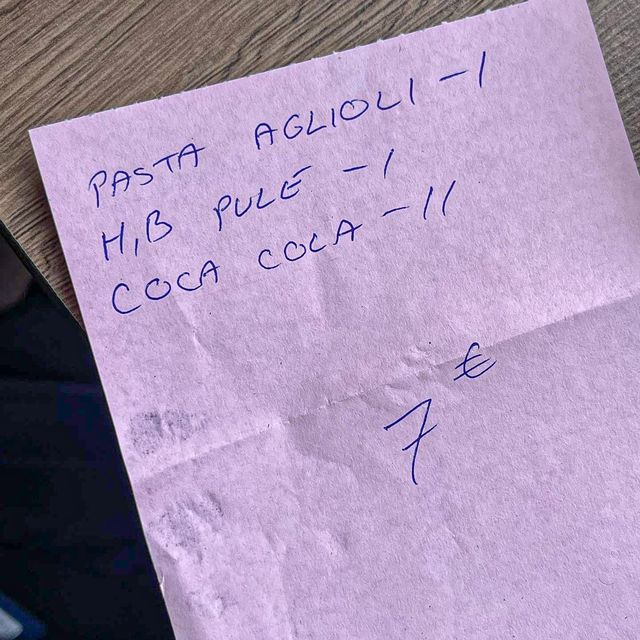 PASTA AGLIOLI - 1
H,B PULE - 1
COCA COLA - 11
7 €